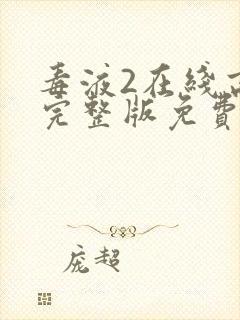 毒液2在线
完整版免费
庞超